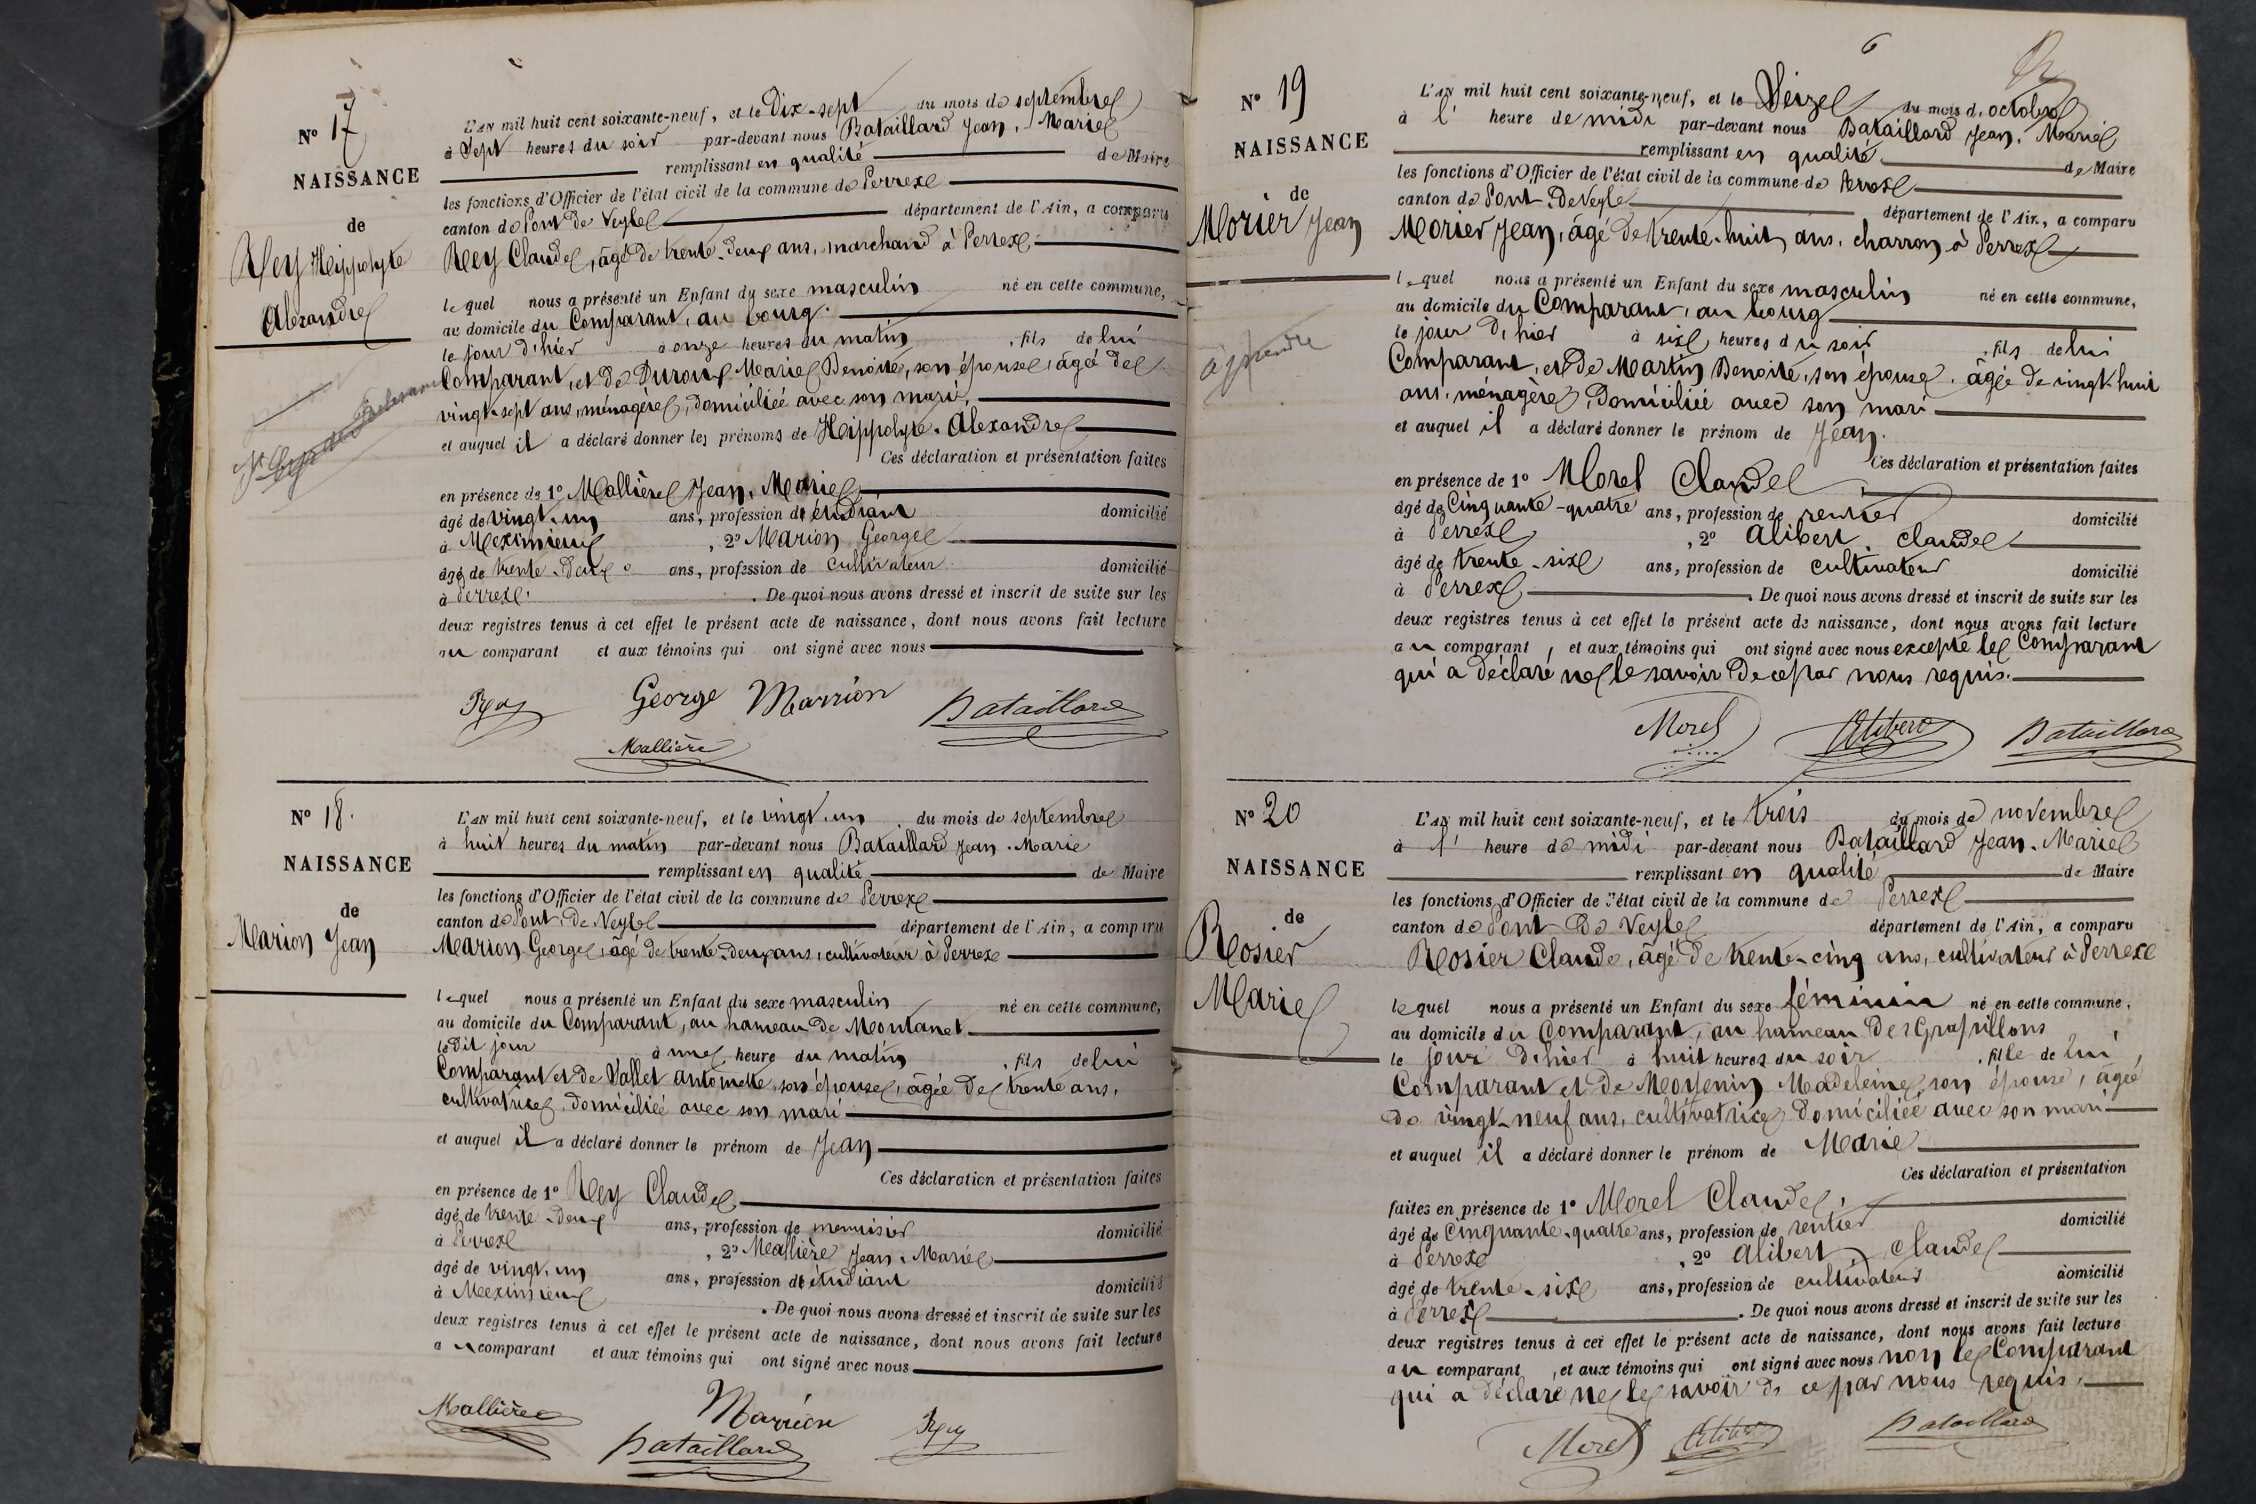 N° 17
NAISSANCE
de
Rey Hippolyte
Alexandre
L'AN mil huit cent soixante-neuf, et le Dix-sept du mois de septembre
à Sept heures du soir par-devant nous Bataillard Jean-Marie
remplissant en qualité de Maire
les fonctions d'Officier de l'état civil de la commune de Perrex
canton de Pont de Veyle département de l'Ain, a comparu
Rey Claude, âgé de trente-deux ans, marchand à Perrex
lequel nous a présenté un Enfant du sexe masculin né en cette commune,
au domicile du Comparant, au bourg.
le jour d'hier à onze heures du matin, fils de lui
Comparant, et de Duroux Marie Benoite, son épouse, âgée de
vingt-sept ans, ménagère, domiciliée avec son mari,
et auquel il a déclaré donner les prénoms de Hippolyte-Alexandre
Ces déclaration et présentation faites
en présence de 1° Mallière Jean-Marie
âgé de vingt-un ans, profession d'étudiant domicilié
à Meximieux, 2° Marion George
âgé de trente-deux ans, profession de cultivateur domicilié
à Perrex. De quoi nous avons dressé et inscrit de suite sur les
deux registres tenus à cet effet le présent acte de naissance, dont nous avons fait lecture
au comparant et aux témoins qui ont signé avec nous
Rey George Marrion Bataillard
Mallière
N° 18.
NAISSANCE
de
Marion Jean
L'AN mil huit cent soixante-neuf, et le vingt-un du mois de septembre
à huit heures du matin par-devant nous Bataillard Jean-Marie
remplissant en qualité de Maire
les fonctions d'Officier de l'état civil de la commune de Perrex
canton de Pont-de-Veyle département de l'Ain, a comparu
Marion George, âgé de trente-deux ans, cultivateur à Perrex
lequel nous a présenté un Enfant du sexe masculin né en cette commune,
au domicile du Comparant, au hameau de Montanet
le dit jour à une heure du matin, fils de lui
Comparant et de Vallet Antoinette, son épouse, âgée de trente ans,
cultivatrice, domiciliée avec son mari
et auquel il a déclaré donner le prénom de Jean
Ces déclaration et présentation faites
en présence de 1° Rey Claude
âgé de trente-deux ans, profession de menuisier domicilié
à Perrex, 2° Mallière Jean-Marie
âgé de vingt-un ans, profession d'étudiant domicilié
à Meximieux. De quoi nous avons dressé et inscrit de suite sur les
deux registres tenus à cet effet le présent acte de naissance, dont nous avons fait lecture
au comparant et aux témoins qui ont signé avec nous
Mallière Marrion Rey
Bataillard
6
N° 19
NAISSANCE
de
Morier Jean
L'AN mil huit cent soixante-neuf, et le Seize du mois d'octobre
à l'heure de midi par-devant nous Bataillard Jean-Marie
remplissant en qualité de Maire
les fonctions d'Officier de l'état civil de la commune de Perrex
canton de Pont-de Veyle département de l'Ain, a comparu
Morier Jean, âgé de trente-huit ans, charron à Perrex
lequel nous a présenté un Enfant du sexe masculin né en cette commune,
au domicile du Comparant, au bourg
le jour d'hier à six heures du soir, fils de lui
Comparant, et de Martin Benoite, son épouse, âgée de vingt-huit
ans, ménagère, domiciliée avec son mari
et auquel il a déclaré donner le prénom de Jean.
Ces déclaration et présentation faites
en présence de 1° Morel Claude
âgé de Cinquante-quatre ans, profession de rentier domicilié
à Perrex, 2° Alibert Claude
âgé de trente-six ans, profession de cultivateur domicilié
à Perrex. De quoi nous avons dressé et inscrit de suite sur les
deux registres tenus à cet effet le présent acte de naissance, dont nous avons fait lecture
au comparant, et aux témoins qui ont signé avec nous excepté le Comparant
qui a déclaré ne le savoir de ce par nous requis.
Morel Alibert Bataillard
N° 20
NAISSANCE
de
Rosier
Marie
L'AN mil huit cent soixante-neuf, et le trois du mois de novembre
à l'heure de midi par-devant nous Bataillard Jean-Marie
remplissant en qualité de Maire
les fonctions d'Officier de l'état civil de la commune de Perrex
canton de Pont-de Veyle département de l'Ain, a comparu
Rosier Claude, âgé de trente-cinq ans, cultivateur à Perrex
lequel nous a présenté un Enfant du sexe féminin né en cette commune,
au domicile du Comparant, au hameau des Grapillons
le jour d'hier à huit heures du soir, fille de lui,
Comparant et de Moyenin Madeleine, son épouse, âgée
de vingt-neuf ans, cultivatrice domiciliée avec son mari
et auquel il a déclaré donner le prénom de Marie
Ces déclaration et présentation
faites en présence de 1° Morel Claude,
âgé de Cinquante-quatre ans, profession de rentier domicilié
à Perrex, 2° Alibert Claude
âgé de trente-six ans, profession de cultivateur domicilié
à Perrex. De quoi nous avons dressé et inscrit de suite sur les
deux registres tenus à cet effet le présent acte de naissance, dont nous avons fait lecture
au comparant, et aux témoins qui ont signé avec nous non le Comparant
qui a déclaré ne le savoir de ce par nous requis.
Morel Alibert Bataillard